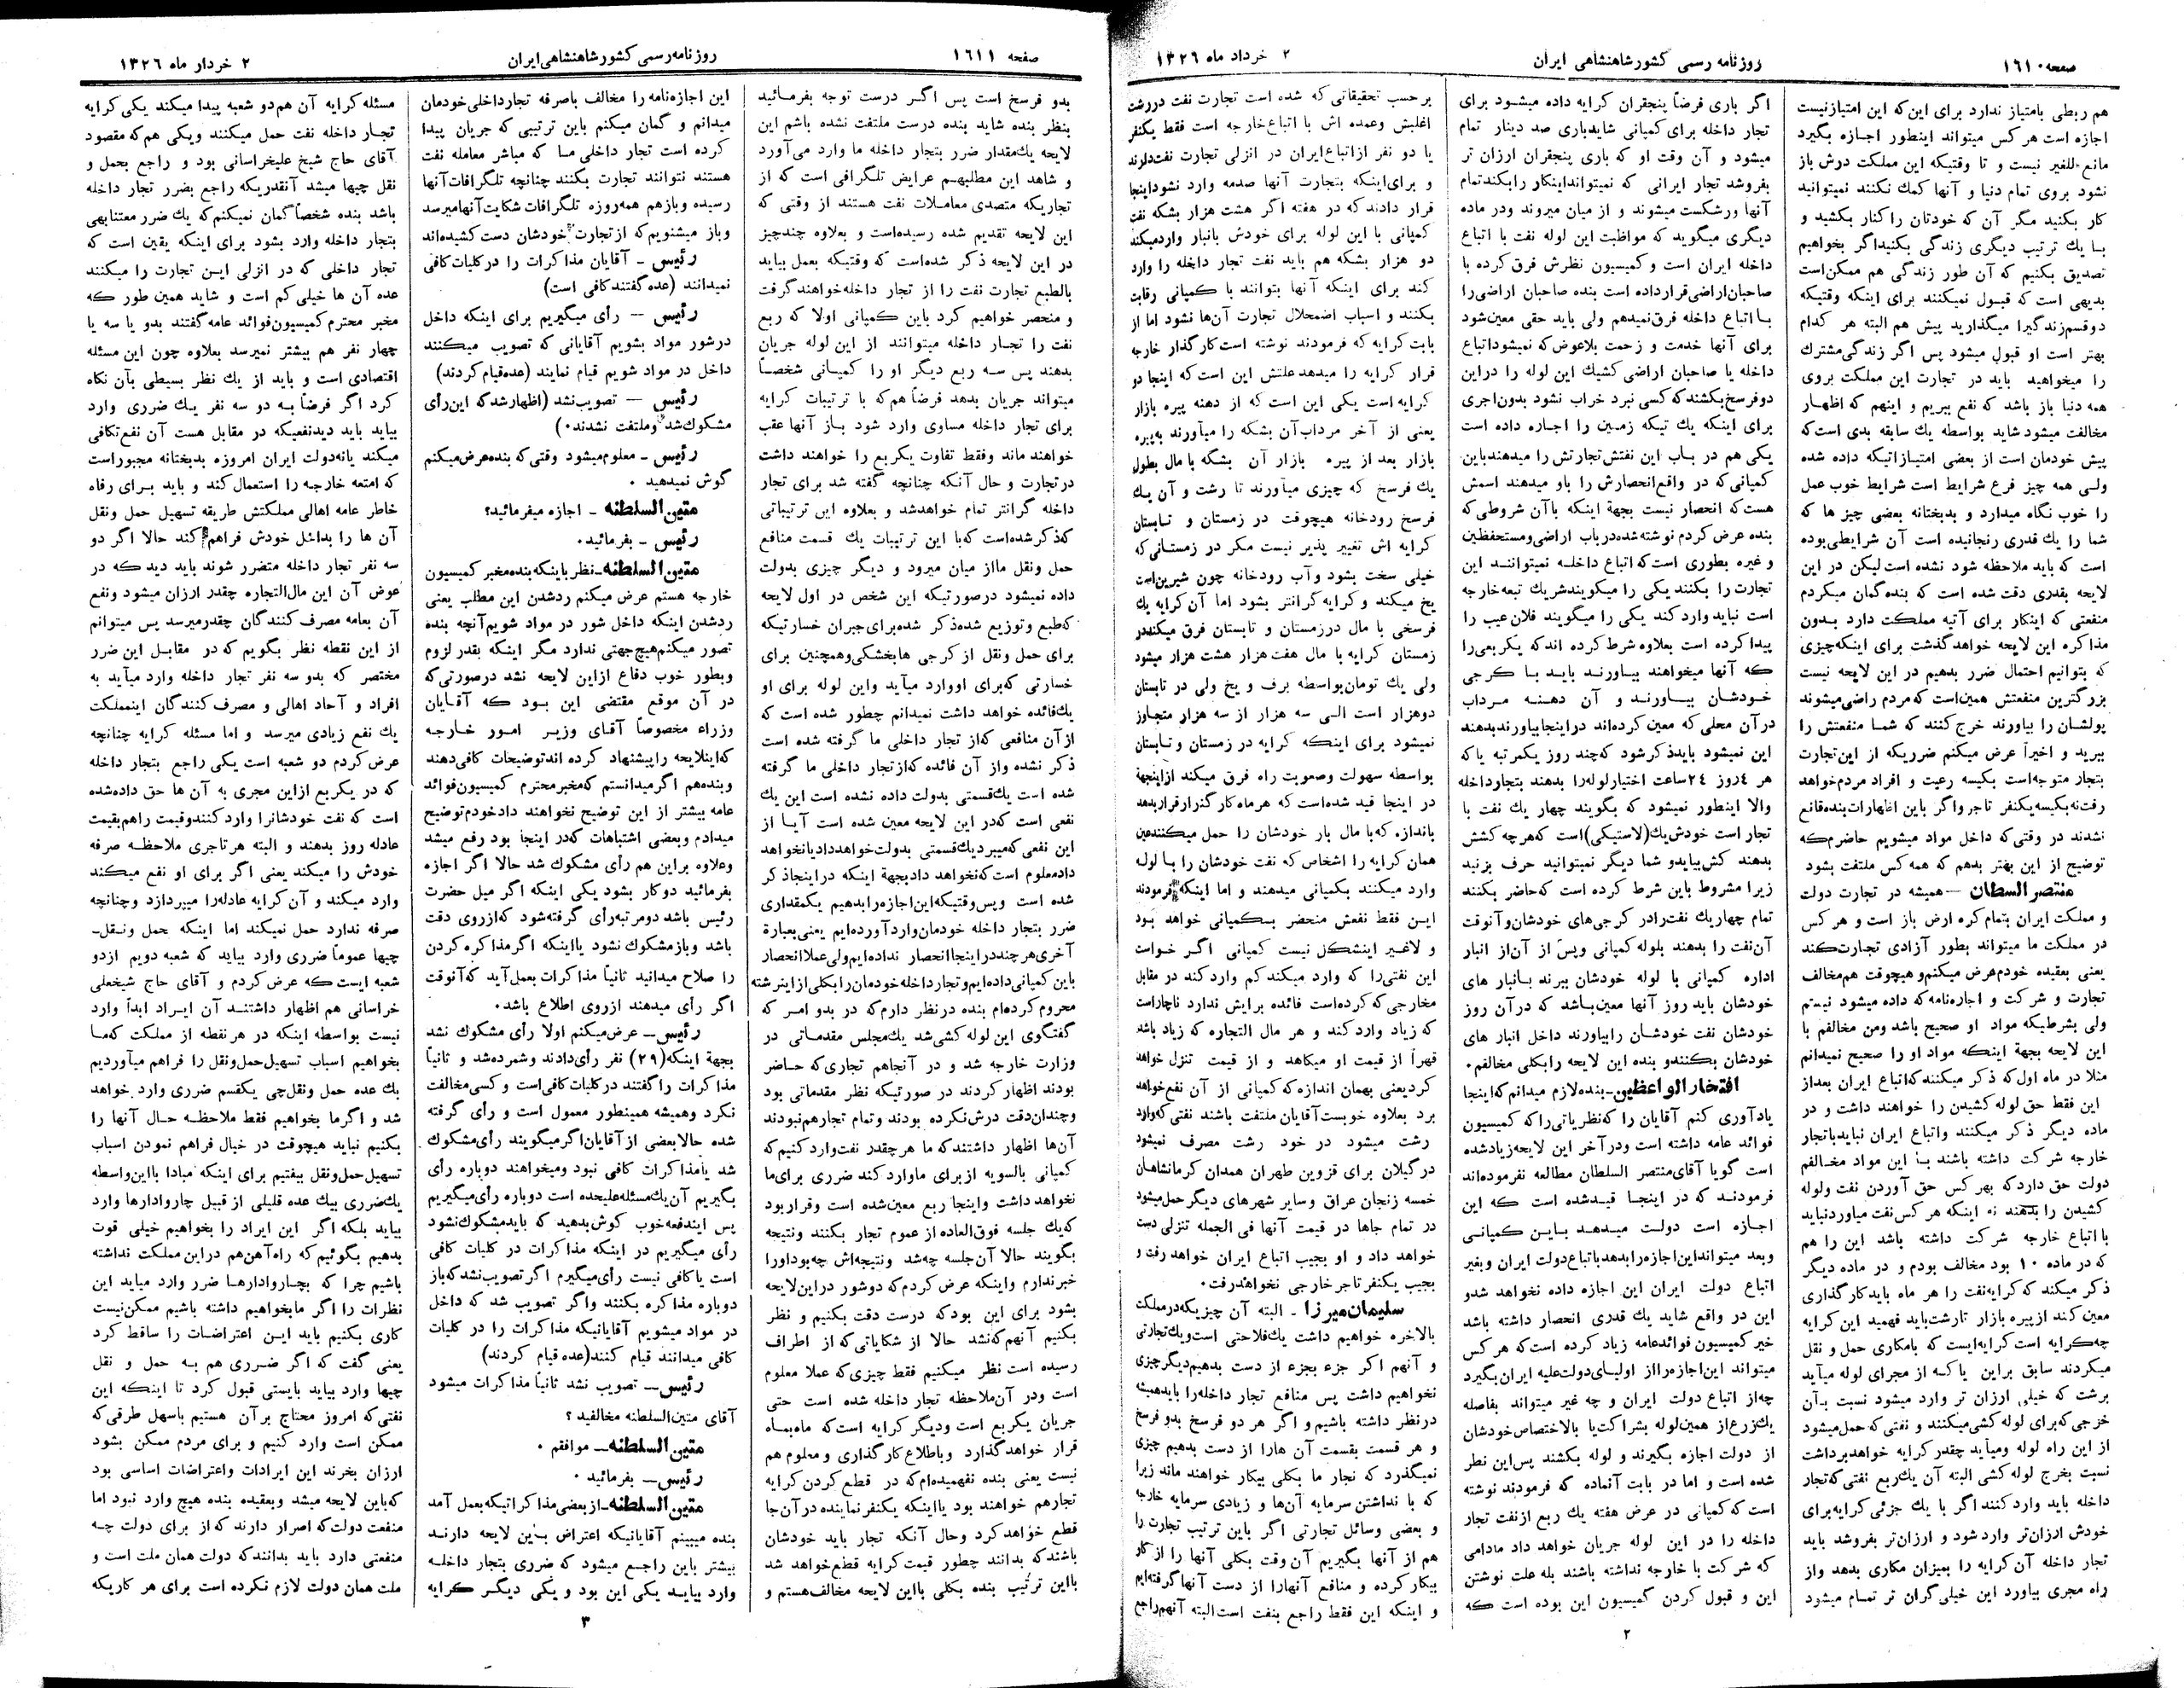 صفحه ۱٦۱۰
روزنامه رسمی کشور شاهنشاهی ایران
۲ خرداد ماه ۱۳۲٦
هم ربطی بامتیاز ندارد برای این‌که این امتیاز نیست
اجازه است هر کس میتواند اینطور اجازه بگیرد
مانع‌للغیر نیست و تا وقتیکه این مملکت درش باز
نشود بروی تمام دنیا و آنها کمك نکنند نمیتوانید
کار بکنید مگر آن که خودتان را کنار بکشید و
بـا یك ترتیب دیگری زندگی بکنید اگر بخواهیم
تصدیق بکنیم که آن طور زندگی هم ممکن است
بدیهی است که قبـول نمیکنند برای اینکه وقتیکه
دو قسم زندگی را میگذارید پیش هم البته هر کدام
بهتر است او قبول میشود پس اگر زندگی مشترك
را میخواهید باید در تجارت این مملکت بروی
همه دنیا باز باشد که نفع ببریم و اینهم که اظهـار
مخالفت میشود شاید بواسطه یك سابقه بدی است که
پیش خودمان است از بعضی امتیازاتیکه داده شده
ولـی همه چیز فرع شرایط است شرایط خوب عمل
را خوب نگاه میدارد و بدبختانه بعضی چیز ها که
شما را یك قدری رنجانیده است آن شرایطی بوده
است که باید ملاحظه شود نشده است لیکن در این
لایحه بقدری دقت شده است که بنده گمان میکردم
منفعتی که اینکار برای آتیه مملکت دارد بـدون
مذاکره این لایحه خواهد گذشت برای اینکه چیزی
که بتوانیم احتمال ضرر بدهیم در این لایحه نیست
بزرگترین منفعتش همین است که مردم راضی میشوند
پولشان را بیاورند خرج کنند که شمـا منفعتش را
ببرید و اخیراً عرض میکنم ضرریکه از این تجارت
بتجار متوجه است بکیسه رعیت و افراد مردم خواهد
رفت نه بکیسه یکنفر تاجر و اگر باین اظهارات بنده قانع
نشدند در وقتی که داخل مواد میشویم حاضرم که
توضیح از این بهتر بدهم که همه کس ملتفت بشود
منتصر السطان — همیشه در تجارت دولت
و مملکت ایران بتمام کره ارض باز است و هر کس
در مملکت ما میتواند بطور آزادی تجارت کند
یعنی بعقیده خودم عرض میکنم و هیچوقت هم مخالف
تجارت و شرکت و اجازه‌نامه که داده میشود نیستم
ولی بشرطیکه مواد او صحیح باشد ومن مخالفم با
این لایحه بجهة اینکه مواد او را صحیح نمیدانم
مثلا در ماه اول که ذکر میکنند که اتباع ایران بعد از
این فقط حق لوله کشیدن را خواهند داشت و در
ماده دیگر ذکر میکنند واتباع ایران نباید با تجار
خارجه شرکت داشته باشند بـا این مواد مخـالفم
دولت حق دارد که بهر کس حق آوردن نفت ولوله
کشیدن را بدهند نه اینکه هر کس نفت میاورد نباید
با اتباع خارجه شرکت داشته باشد این را هم
که در ماده ۱۰ بود مخالف بودم و در ماده دیگر
ذکر میکند که کرایه نفت را هر ماه باید کارگذاری
معین کند از پیره بازار تا رشت باید فهمید این کرایه
چه کرایه است کرایه ایست که بامکاری حمل و نقل
میکردند سابق بر این یا که از مجرای لوله میآید
برشت که خیلی ارزان تر وارد میشود نسبت بـآن
خرجی که برای لوله کشی میکنند و نفتی که حمل میشود
از این راه لوله و میآید چقدر کرایه خواهد برداشت
نسبت بخرج لوله کشی البته آن یك ربع نفتی که تجار
داخله باید وارد کنند اگر با یك جزئی کرایه برای
خودش ارزان‌تر وارد شود و ارزان‌تر بفروشد باید
تجار داخله آن کرایه را بمیزان مکاری بدهد و از
راه مجری بیاورد این خیلی گران تر تمـام میشود
اگر باری فرضاً پنجقران کرایه داده میشـود برای
تجار داخله برای کمپانی شاید باری صد دینار تمام
میشود و آن وقت او که باری پنجقران ارزان تر
بفروشد تجار ایرانی که نمیتواند اینکار را بکند تمام
آنها ورشکست میشوند و از میان میروند و در ماده
دیگری میگوید که مواظبت این لوله نفت با اتباع
داخله ایران است و کمیسیون نظرش فرق کرده با
صاحبان اراضی قرار داده است بنده صاحبان اراضی را
بـا اتباع داخله فرق نمیدهم ولی باید حقی معین شود
برای آنها خدمت و زحمت بلاعوض که نمیشود اتباع
داخله یا صاحبان اراضی کشیك این لوله را در این
دو فرسخ بکشند که کسی نبرد خراب نشود بدون اجری
برای اینکه یك تیکه زمین را اجاره داده است
یکی هم در بـاب این نفتش تجارتش را میدهند باین
کمپانی که در واقع انحصارش را باو میدهند اسمش
هست که انحصار نیست بجهة اینکه با آن شروطی که
بنده عرض کردم نوشته شده در باب اراضی و مستحفظین
و غیره بطوری است که اتباع داخلـه نمیتواننـد این
تجارت را بکنند یکی را میکویند شریك تبعه خارجه
است نباید وارد کند یکی را میگویند فلان عیب را
پیدا کرده است بعلاوه شرط کرده اند که یکربعی را
که آنها میخواهند بیـاورنـد بایـد بـا کرجـی
خـودشـان بیـاورنـد و آن دهنـه مـرداب
در آن محلی که معین کرده‌اند در اینجا بیاورند بدهند
این نمیشود باید ذکر شود که چند روز یکمرتبه یا که
هر ٤ روز ۲٤ ساعت اختیار لوله را بدهند بتجار داخله
والا اینطور نمیشود که بگویند چهار یك نفت با
تجار است خودش یك (لاستیکی) است که هر چه کشش
بدهند کش بیاید و شما دیگر نمیتوانید حرف بزنید
زیرا مشروط باین شرط کرده است که حاضر بکنند
تمام چهار یك نفت را در کرجی‌های خودشان و آنوقت
آن نفت را بدهند بلوله کمپانی و پس از آن از انبار
اداره کمپانی با لوله خودشان ببرند بـانبار های
خودشان باید روز آنها معین باشد که در آن روز
خودشان نفت خودشان را بیاورند داخل انبار های
خودشان بکنند و بنده این لایحه را بکلی مخالفم.
افتخار الواعظین - بنده لازم میدانم که اینجا
یادآوری کنم آقایان را که نظریاتی را که کمیسیون
فوائد عامه داشته است و در آخر این لایحه زیاد شده
است گویا آقای منتصر السلطان مطالعه نفرموده‌اند
فرمودنـد که در اینجـا قیـد شده است که این
اجـازه است دولـت میدهـد بـایـن کمپـانـی
و بعد میتواند این اجازه را بدهد باتباع دولت ایران و بغیر
اتباع دولت ایران این اجازه داده نخواهد شد و
این در واقع شاید یك قدری انحصار داشته باشد
خیر کمیسیون فوائد عامه زیاد کرده است که هر کس
میتواند این اجازه را از اولیـای دولت علیه ایران بگیرد
چه از اتباع دولت ایران و چه غیر میتواند بفاصله
یك زرع از همین لوله بشراکت یا بالاختصاص خودشان
از دولت اجازه بگیرند و لوله بکشند پس این نظر
شده است و اما در بابت آنماده که فرمودند نوشته
است که کمپانی در عرض هفته یك ربع از نفت تجار
داخله را در این لوله جریان خواهد داد مادامی
که شرکت با خارجه نداشته باشند بله علت نوشتن
این و قبول کردن کمیسیون این بوده است که
بر حسب تحقیقاتی که شده است تجارت نفت در رشت
اغلبش و عمده اش با اتباع خارجه است فقط یکنفر
یا دو نفر از اتباع ایران در انزلی تجارت نفت دارند
و برای اینکه بتجارت آنها صدمه وارد نشود اینجا
قرار دادند که در هفته اگر هشت هزار بشکه نفت
کمپانی با این لوله برای خودش بانبار وارد میکند
دو هزار بشکه هم باید نفت تجار داخله را وارد
کند برای اینکه آنها بتوانند با کمپانی رقابت
بکنند و اسباب اضمحلال تجارت آن‌ها نشود اما از
بابت کرایه که فرمودند نوشته است کارگذار خارجه
قرار کرایه را میدهد علتش این است که اینجا دو
کرایه است یکی این است که از دهنه پیره بازار
یعنی از آخر مرداب آن بشکه را میآورند به پیره
بازار بعد از پیره بازار آن بشگه با مال بطول
یك فرسخ که چیزی میآورند تا رشت و آن یك
فرسخ رودخانه هیچوقت در زمستان و تـابستان
کرایه اش تغییر پذیر نیست مکر در زمستـانی که
خیلی سخت بشود و آب رودخانه چون شیرین است
یخ میکند و کرایه گرانتر بشود اما آن کرایه یك
فرسخی با مال در زمستان و تابستان فرق میکند در
زمستان کرایه با مال هفت هزار هشت هزار میشود
ولی یك تومان بواسطه برف و یخ ولی در تابستان
دو هزار است الـی سه هزار از سه هزار متجاوز
نمیشود برای اینکه کرایه در زمستان و تـابستان
بواسطه سهولت وصعوبت راه فرق میکند از اینجهة
در اینجا قید شده است که هر ماه کارگذار قرار بدهد
باندازه که با مال بار خودشان را حمل میکنند عین
همان کرایه را اشخاص که نفت خودشان را بـا لوله
وارد میکنند بکمپانی میدهند و اما اینکه فرمودند
ایـن فقط نفعش منحصر بـکمپـانی خواهد بـود
و لاغیر اینشکل نیست کمپانی اگـر خـواست
این نفتی را که وارد میکند کم وارد کند در مقابل
مخارجی که کرده است فائده برایش ندارد ناچار است
که زیاد وارد کند و هر مال التجاره که زیاد باشد
قهراً از قیمت او میکاهد و از قیمت تنزل خواهد
کرد یعنی بهمان اندازه که کمپانی از آن نفع خواهد
برد بعلاوه خوبست آقایان ملتفت باشند نفتی که وارد
رشت میشود در خود رشت مصرف نمیشود
در گیلان برای قزوین طهران همدان کرمانشاهان
خمسه زنجان عراق و سایر شهرهای دیگر حمل میشود
در تمام جاها در قیمت آنها فی الجمله تنزلی دست
خواهد داد و او بجیب اتباع ایران خواهد رفت و
بجیب یکنفر تاجر خارجی نخواهد رفت.
سلیمان میرزا ـ البته آن چیزیکه در مملکت
بالاخره خواهیم داشت یك فلاحتی است و یك تجارتی
و آنهم اگر جزء بجزء از دست بدهیم دیگر چیزی
نخواهیم داشت پس منافع تجار داخله را باید همیشه
در نظر داشته باشیم و اگر هر دو فرسخ بدو فرسخ
و هر قسمت بقسمت آن هارا از دست بدهیم چیزی
نمیگذرد که تجار ما بکلی بیکار خواهند ماند زیرا
که با نداشتن سرمایه آن‌ها و زیادی سرمایه خارجه
و بعضی وسائل تجارتی اگر باین ترتیب تجارت را
هم از آنها بگیریم آن وقت بکلی آنها را از کار
بیکار کرده و منافع آنهارا از دست آنها گرفته‌ایم
و اینکه این فقط راجع بنفت است البته آنهم راجع
۲
صفحه ۱٦۱۱
روزنامه رسمی کشور شاهنشاهی ایران
۲ خردار ماه ۱۳۲٦
بدو فرسخ است پس اگـر درست توجه بفرمـائید
بنظر بنده شاید بنده درست ملتفت نشده باشم این
لایحه یك مقدار ضرر بتجار داخله ما وارد می‌آورد
و شاهد این مطلبهـم عرایض تلـگرافی است که از
تجاریکه متصدی معامـلات نفت هستند از وقتی که
این لایحه تقدیم شده رسیده است و بعلاوه چند چیز
در این لایحه ذکر شده است که وقتیکه بعمل بیاید
بالطبع تجارت نفت را از تجار داخله خواهند گرفت
و منحصر خواهیم کرد باین کمپانی اولا که ربع
نفت را تجـار داخله میتوانند از این لوله جریان
بدهند پس سـه ربع دیگر او را کمپـانی شخصـاً
میتواند جریان بدهد فرضاً هم که با ترتیبات کرایه
برای تجار داخله مساوی وارد شود بـاز آنها عقب
خواهند ماند و فقط تفاوت یکربع را خواهند داشت
در تجارت و حال آنکه چنانچه گفته شد برای تجار
داخله گرانتر تمام خواهد شد و بعلاوه این ترتیباتی
که ذکر شده است که با این ترتیبات یك قسمت منافع
حمل و نقل ما از میان میرود و دیگر چیزی بدولت
داده نمیشود درصورتیکه این شخص در اول لایحه
که طبع و توزیع شده ذکر شده برای جبران خسارتیکه
برای حمل و نقل از کرجی ها بخشکی و همچنین برای
خسارتی که برای او وارد میآید و این لوله برای او
یك فائده خواهد داشت نمیدانم چطور شده است که
از آن منافعی که از تجار داخلی ما گرفته شده است
ذکر نشده و از آن فائده که از تجار داخلی ما گرفته
شده است یك قسمتی بدولت داده نشده است این یك
نفعی است که در این لایحه معین شده است آیـا از
این نفعی که میبرد یك قسمتی بدولت خواهد داد یا نخواهد
داد معلوم است که نخواهد داد بجهة اینکه در اینجا ذکر
شده است و پس وقتیکه این اجازه را بدهیم یکمقداری
ضرر بتجار داخله خودمان وارد آورده‌ایم یعنی بعبارة
آخری هر چند در اینجا انحصار نداده‌ایم ولی عملا انحصار
باین کمپانی داده‌ایم و تجار داخله خودمان را بکلی از اینرشته
محروم کرده‌ام بنده در نظر دارم که در بدو امـر که
گفتگوی این لوله کشی شد یك مجلس مقدمـاتی در
وزارت خارجه شد و در آنجا هم تجاری که حـاضر
بودند اظهار کردند در صورتیکه نظر مقدماتی بود
و چندان دقت درش نکرده بودند و تمام تجار هم نبودند
آن‌ها اظهار داشتند که ما هر چقدر نفت وارد کنیم که
کمپانی بالسویه از برای ما وارد کند ضرری برای ما
نخواهد داشت و اینجا ربع معین شده است و قرار بود
که یك جلسه فوق العاده از عموم تجار بکنند و نتیجه
بگویند حالا آن جلسه چه شد و نتیجه‌اش چه بود او را
خبر ندارم و اینکه عرض کردم که دو شور در این لایحه
بشود برای این بود که درست دقت بکنیم و نظر
بکنیم آنهم که نشد حالا از شکایاتی که از اطراف
رسیده است نظر میکنیم فقط چیزی که عملا معلوم
است و در آن ملاحظه تجار داخله شده است حتی
جریان یکربع است و دیگر کرایه است که ماه بمـاه
قرار خواهد گذارد و باطلاع کارگذاری و معلوم هم
نیست یعنی بنده نفهمیده‌ام که در قطع کردن کرایه
تجار هم خواهند بود یا اینکه یکنفر نماینده در آن‌جا
قطع خواهد کرد و حال آنکه تجار باید خودشان
باشند که بدانند چطور قیمت کرایه قطع خواهد شد
با این ترتیب بنده بکلی با این لایحه مخالف هستم و
این اجازه‌نامه را مخالف با صرفه تجار داخلی خودمان
میدانم و گمان میکنم باین ترتیبی که جریان پیدا
کرده است تجار داخلی مـا که مباشر معامله نفت
هستند نتوانند تجارت بکنند چنانچه تلگرافات آنها
رسیده و باز هم همه روزه تلگرافات شکایت آنها میرسد
و باز میشنویم که از تجارت خودشان دست کشیده‌اند
رئیس ـ آقایان مذاکرات را در کلیات کافی
نمیدانند (عده گفتند کافی است)
رئیس — رأی میگیریم برای اینکه داخل
در شور مواد بشویم آقایانی که تصویب میکنند
داخل در مواد شویم قیام نمایند (عده قیام کردند)
رئیس — تصویب نشد (اظهار شد که این رأی
مشکوك شد و ملتفت نشدند.)
رئیس ـ معلوم میشود وقتی که بنده عرض میکنم
گوش نمیدهید .
متین السلطنه ـ اجازه میفرمائید؟
رئیس ـ بفرمائید.
متین السلطنه ـ نظر باینکه بنده مخبر کمیسیون
خارجه هستم عرض میکنم رد شدن این مطلب یعنی
رد شدن اینکه داخل شور در مواد شویم آنچه بنده
تصور میکنم هیچ جهتی ندارد مگر اینکه بقدر لزوم
و بطور خوب دفاع از این لایحه نشد در صورتی که
در آن موقع مقتضی این بـود که آقـایان
وزراء مخصوصاً آقـای وزیـر امـور خـارجـه
که اینلایحه را پیشنهاد کرده اند توضیحات کافی دهند
و بنده هم اگر میدانستم که مخبر محترم کمیسیون فوائد
عامه بیشتر از این توضیح نخواهند داد خودم توضیح
میدادم و بعضی اشتباهات که در اینجا بود رفع میشد
و علاوه بر این هم رأی مشکوك شد حالا اگر اجازه
بفرمائید دو کار بشود یکی اینکه اگر میل حضرت
رئیس باشد دو مرتبه رأی گرفته شود که از روی دقت
باشد و باز مشکوك نشود یا اینکه اگر مذاکره کردن
را صلاح میدانید ثانیاً مذاکرات بعمل آید که آنوقت
اگر رأی میدهند از روی اطلاع باشد.
رئیس ـ عرض میکنم اولا رأی مشکوك نشد
بجهة اینکه (۲۹) نفر رأی دادند و شمرده شد و ثانیاً
مذاکرات را گفتند در کلیات کافی است و کسی مخالفت
نکرد و همیشه همینطور معمول است و رأی گرفته
شده حالا بعضی از آقایان اگر میگویند رأی مشکوك
شد یا مذاکرات کافی نبود و میخواهند دوباره رأی
بگیریم آن یك مسئله علیحده است دوباره رأی میگیریم
پس ایندفعه خوب کوش بدهید که باید مشکوك نشود
رأی میگیریم در اینکه مذاکرات در کلیات کافی
است یا کافی نیست رأی میگیرم اگر تصویب نشد که باز
دوباره مذاکره بکنند و اگر تصویب شد که داخل
در مواد میشویم آقایانیکه مذاکرات را در کلیات
کافی میدانند قیام کنند (عده قیام کردند)
رئیس ـ تصویب نشد ثانیاً مذاکرات میشود
آقای متین السلطنه مخالفید ؟
متین السلطنه ـ موافقم .
رئیس ـ بفرمائید .
متین السلطنه ـ از بعضی مذاکراتیکه بعمل آمد
بنده میبینم آقایانیکه اعتراض باین لایحه دارنـد
بیشتر باین راجـع میشود که ضرری بتجار داخلـه
وارد بیایـد یکی این بود و یکی دیگـر کرایه
مسئله کرایه آن هم دو شعبه پیدا میکند یکی کرایه
تجـار داخله نفت حمل میکنند و یکی هم که مقصود
آقای حاج شیخ علی خراسانی بود و راجع بحمل و
نقل چیها میشد آنقدریکه راجع بضرر تجار داخله
باشد بنده شخصاً گمان نمیکنم که یك ضرر معتنابهی
بتجار داخله وارد بشود برای اینکه یقین است که
تجار داخلی که در انزلی ایـن تجارت را میکنند
عده آن ها خیلی کم است و شاید همین طور که
مخبر محترم کمیسیون فوائد عامه گفتند بدو یا سه یا
چهار نفر هم بیشتر نمیرسد بعلاوه چون این مسئله
اقتصادی است و باید از یك نظر بسیطی بآن نکاه
کرد اگر فرضاً بـه دو سه نفر یـك ضرری وارد
بیاید باید دید نفعیکه در مقابل هست آن نفع تکافی
میکند یا نه دولت ایران امروزه بدبختانه مجبور است
که امتعه خارجه را استعمال کند و باید بـرای رفاه
خاطر عامه اهالی مملکتش طریقه تسهیل حمل و نقل
آن ها را بداخل خودش فراهم کند حالا اگر دو
سه نفر تجار داخله متضرر شوند باید دید که در
عوض آن این مال التجاره چقدر ارزان میشود و نفع
آن بعامه مصرف کنندگان چقدر میرسد پس میتوانم
از این نقطه نظر بگویم که در مقابـل این ضرر
مختصر که بدو سه نفر تجار داخله وارد میآید به
افراد و آحاد اهالی و مصرف کنندگان اینمملکت
یك نفع زیادی میرسد و اما مسئله کرایه چنانچه
عرض کردم دو شعبه است یکی راجع بتجار داخله
که در یکربع از این مجری به آن ها حق داده شده
است که نفت خودشانرا وارد کنند و قیمت را هم بقیمت
عادله روز بدهند و البته هر تاجری ملاحظـه صرفه
خودش را میکند یعنی اگر برای او نفع میکند
وارد میکند و آن کرایه عادله را میپردازد و چنانچه
صرفه ندارد حمل نمیکند اما اینکه حمل و نقل-
چیها عموماً ضرری وارد بیاید که شعبه دویم از دو
شعبه ایست که عرض کردم و آقای حاج شیخعلی
خراسانی هم اظهار داشتنـد آن ایـراد ابداً وارد
نیست بواسطه اینکه در هر نقطه از مملکت که مـا
بخواهیم اسباب تسهیل حمل و نقل را فراهم میآوردیم
یك عده حمل و نقل چی یکقسم ضرری وارد خواهد
شد و اگر ما بخواهیم فقط ملاحظـه حـال آنها را
بکنیم نباید هیچوقت در خیال فراهم نمودن اسباب
تسهیل حمل و نقل بیفتیم برای اینکه مبادا با این واسطه
یك ضرری بیك عده قلیلی از قبیل چاروادارها وارد
بیاید بلکه اگر این ایراد را بخواهیم خیلی قوت
بدهیم بگوئیم که راه آهن هم در این مملکت نداشته
باشیم چرا که بچـاروادارهـا ضرر وارد میاید این
نظرات را اگر ما بخواهیم داشته باشیم ممکن نیست
کاری بکنیم باید ایـن اعتراضـات را ساقط کرد
یعنی گفت که اگر ضـرری هم بـه حمل و نقل
چیها وارد بیاید بایستی قبول کرد تا اینکه این
نفتی که امروز محتاج بر آن هستیم باسهل طرقی که
ممکن است وارد کنیم و برای مردم ممکن بشود
ارزان بخرند این ایرادات و اعتراضات اساسی بود
که باین لایحه میشد و بعقیده بنده هیچ وارد نبود اما
منفعت دولت که اصرار دارند که از برای دولت چـه
منفعتی دارد باید بدانند که دولت همان ملت است و
ملت همان دولت لازم نکرده است برای هر کاریکه
۳